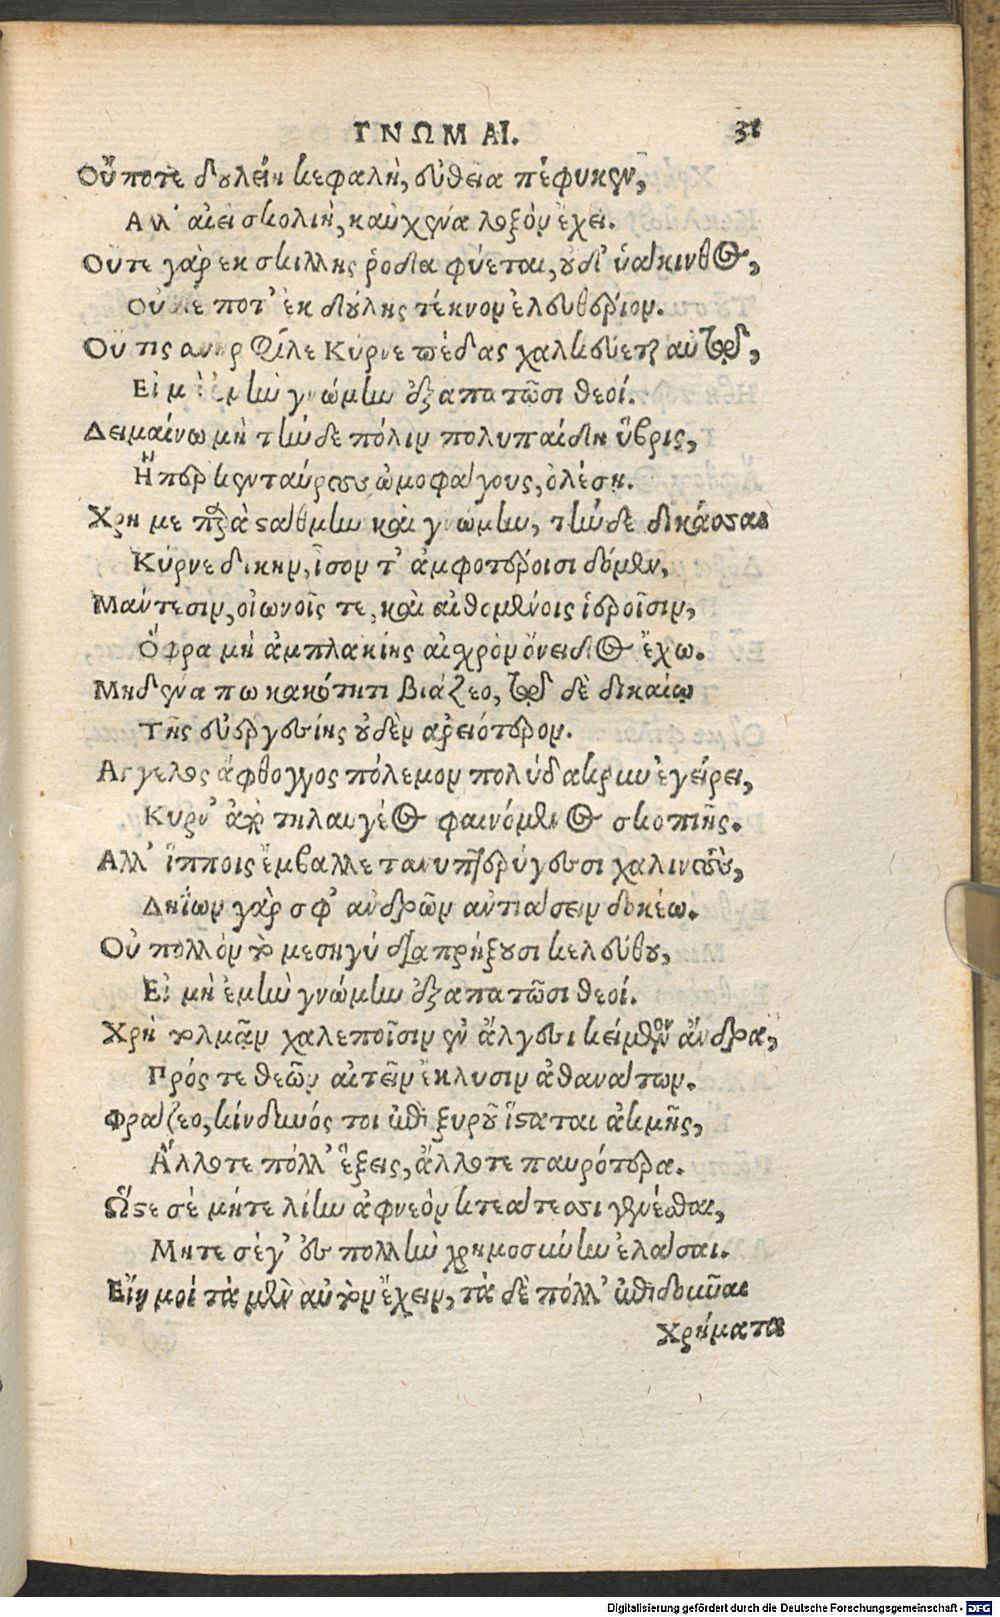 ΓΝΩΜΑΙ. 31
Οὔποτε δουλείη κεφαλὴ, εὐθεῖα πέφυκεν,
Ἀλλ' αἰεὶ σκολιὴ, καὐχένα λοξὸν ἔχει.
Οὔτε γὰρ ἐκ σκίλλης ῥόδα φύεται, οὐδ' ὑάκινθος,
Οὐδέ ποτ' ἐκ δούλης τέκνον ἐλευθέριον.
Οὔτις ἀνὴρ φίλε Κύρνε πέδας χαλκεύεται αὑτῷ,
Εἰ μὴ ἐμὴν γνώμην ἐξαπατῶσι θεοί.
Δειμαίνω μὴ τήνδε πόλιν πολυπαίδη ὕβρις,
Ἥπερ κενταύρους ὠμοφάγους, ὀλέση.
Χρή με παρὰ σαθμην καὶ γνώμην, τήνδε δικάσσαι
Κύρνε δίκην, ἶσον τ' ἀμφοτέροισι δόμεν,
Μάντεσιν, οἰωνοῖς τε, καὶ αἰθομένοις ἱεροῖσιν,
Ὄφρα μὴ ἀμπλακίης αἰχρὸν ὄνειδος ἔχω.
Μηδένα πω κακότητι βιάζεο, τῷ δὲ δικαίῳ
Τῆς εὐεργεσίης οὐδὲν ἀρειότερον.
Ἄγγελος ἄφθογγος πόλεμον πολύδακρυν ἐγείρει,
Κύρν' ἀπὸ τηλαυγέος φαινόμενος σκοπιῆς.
Ἀλλ' ἵπποις ἔμβαλλε τανυπτερύγεσσι χαλινοὺς,
Δηΐων γὰρ σφ' ἀνδρῶν ἀντιάσειν δοκέω.
Οὐ πολλὸν τὸ μεσηγύ διαπρήξουσι κελεύθου,
Εἰ μὴ ἐμὴν γνώμην ἐξαπατῶσι θεοί.
Χρὴ τολμᾷν χαλεποῖσιν ἐν ἄλγεσι κείμενον ἄνδρα,
Πρός τε θεῶν αἰτεῖν ἔκλυσιν ἀθανάτων.
Φράζεο, κίνδυνός τοι ἐπὶ ξυροῦ ἵσταται ἀκμῆς,
Ἄλλοτε πόλλ' ἕξεις, ἄλλοτε παυρότερα.
Ὥστε σὲ μήτε λίην ἀφνεὸν κτεάτεσσι γενέσθαι,
Μήτε σέγ' ἐς πολλὴν χρημοσύνην ἐλάσαι.
Εἴη μοί τὰ μὲν αὐτὸν ἔχειν, τὰ δὲ πόλλ' ἐπιδοῦναι
Χρήματα
Digitalisierung gefördert durch die Deutsche Forschungsgemeinschaft - DFG